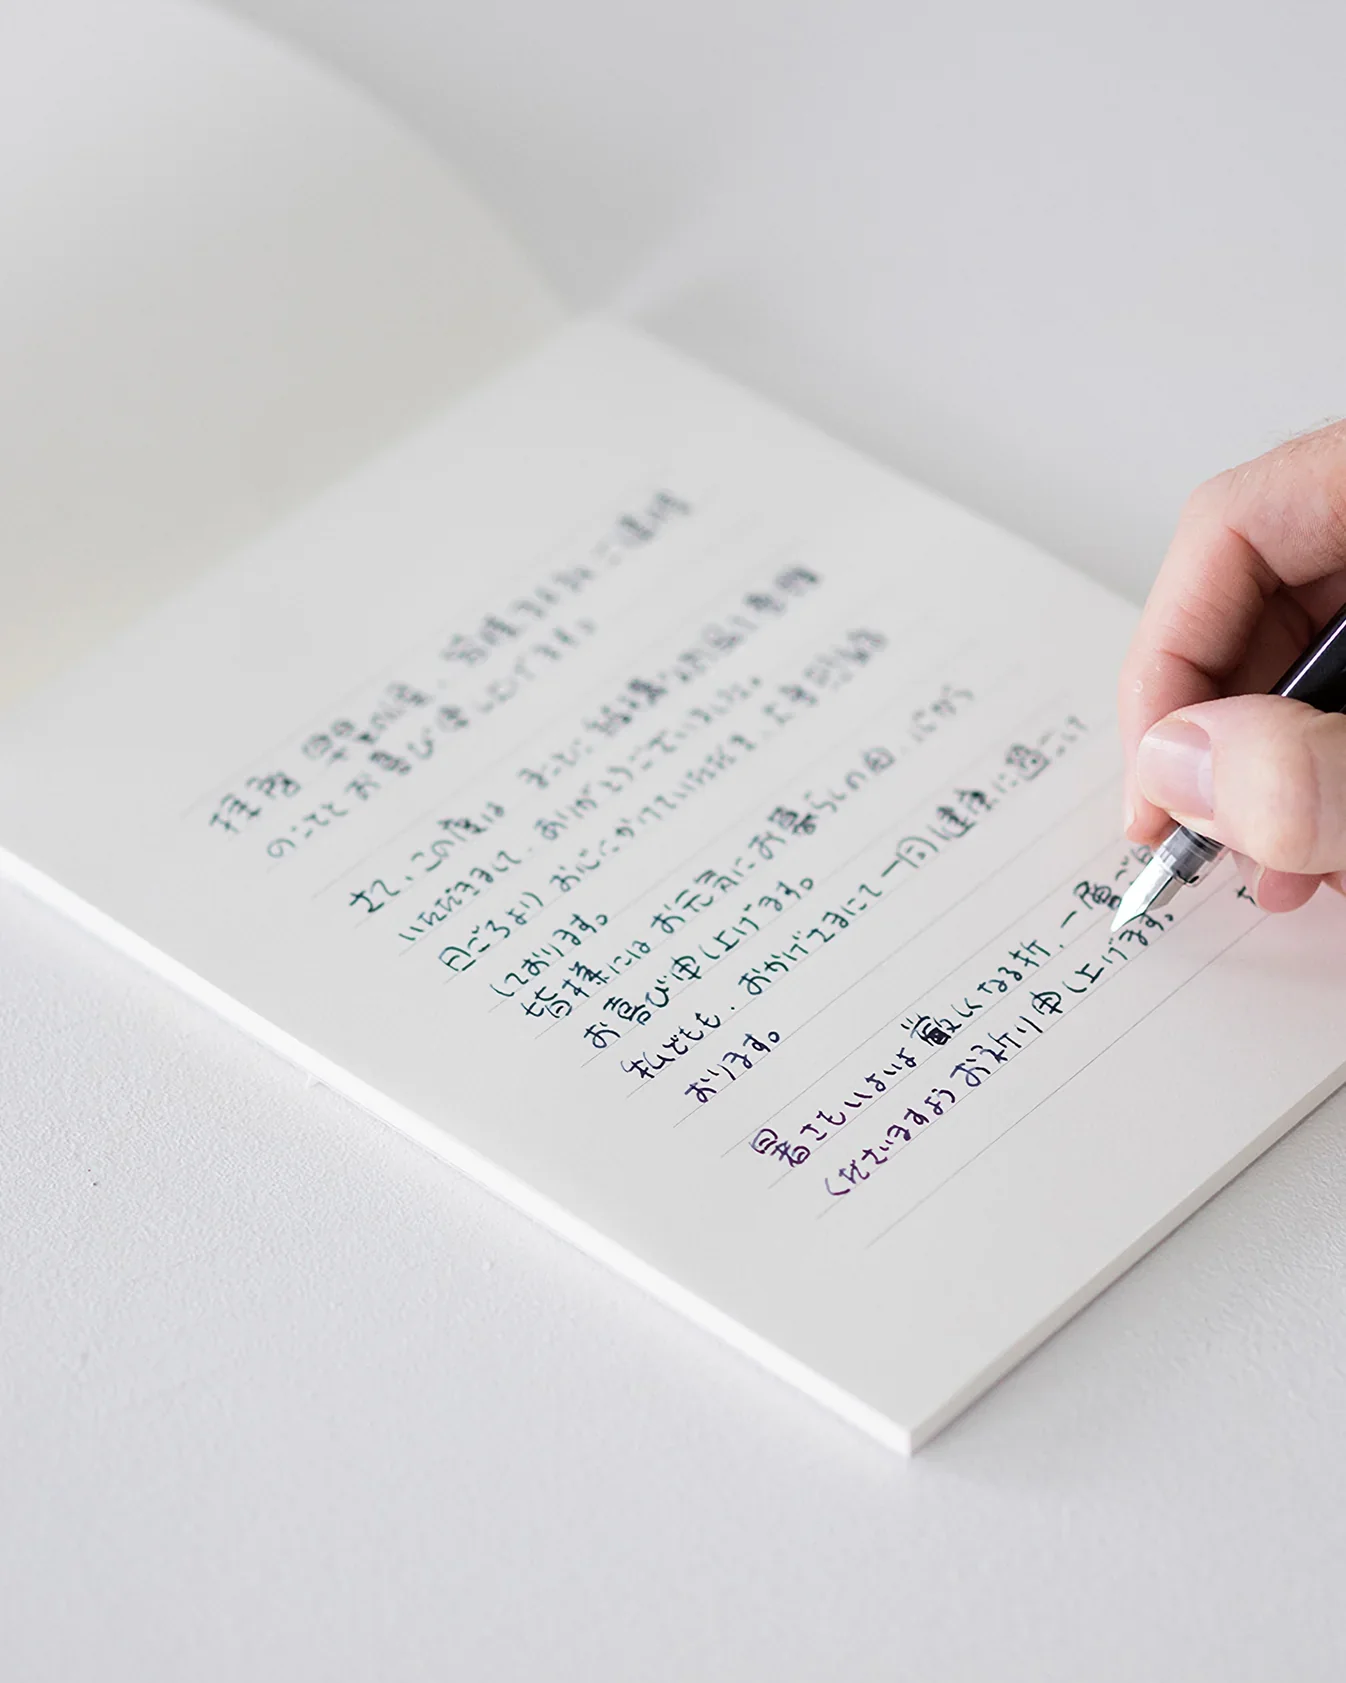 拝啓 早春の候、皆様ますますご清祥
のこととお喜び申し上げます。
さて、この度は まことに結構なお品を
いただきまして、ありがとうございました。
日ごろより お心にかけていただき、
しております。
皆様には お元気にお暮らしの由、心から
お喜び申し上げます。
私どもも、おかげさまにて 一同健康に過ごして
おります。
暑さもいよいよ 厳しくなる折、一層ご自
くださいますよう お祈り申し上げます。